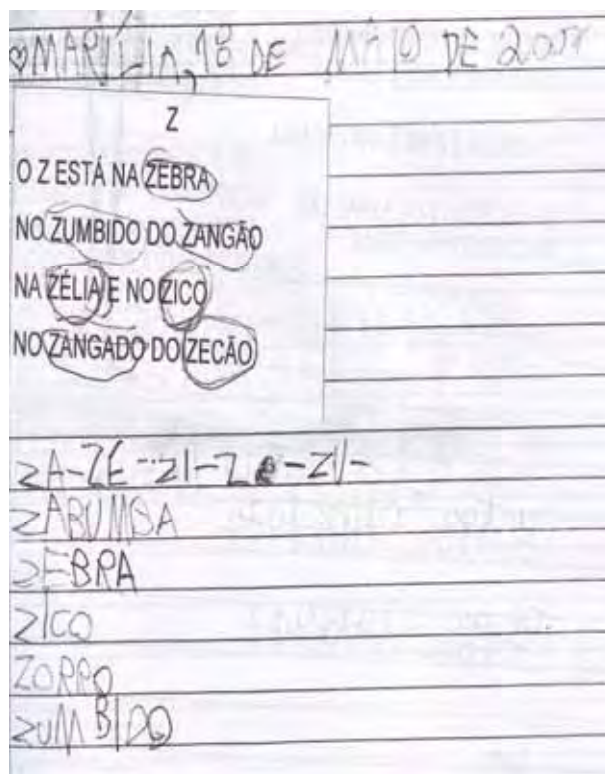 MARÍLIA, 18 DE MAIO DE 200
Z
O Z ESTÁ NA ZEBRA
NO ZUMBIDO DO ZANGÃO
NA ZÉLIA E NO ZICO
NO ZANGADO DO ZECÃO
ZA-ZE-ZI-ZO-ZU-
ZABUMBA
ZEBRA
ZICO
ZORRO
ZUMBIDO